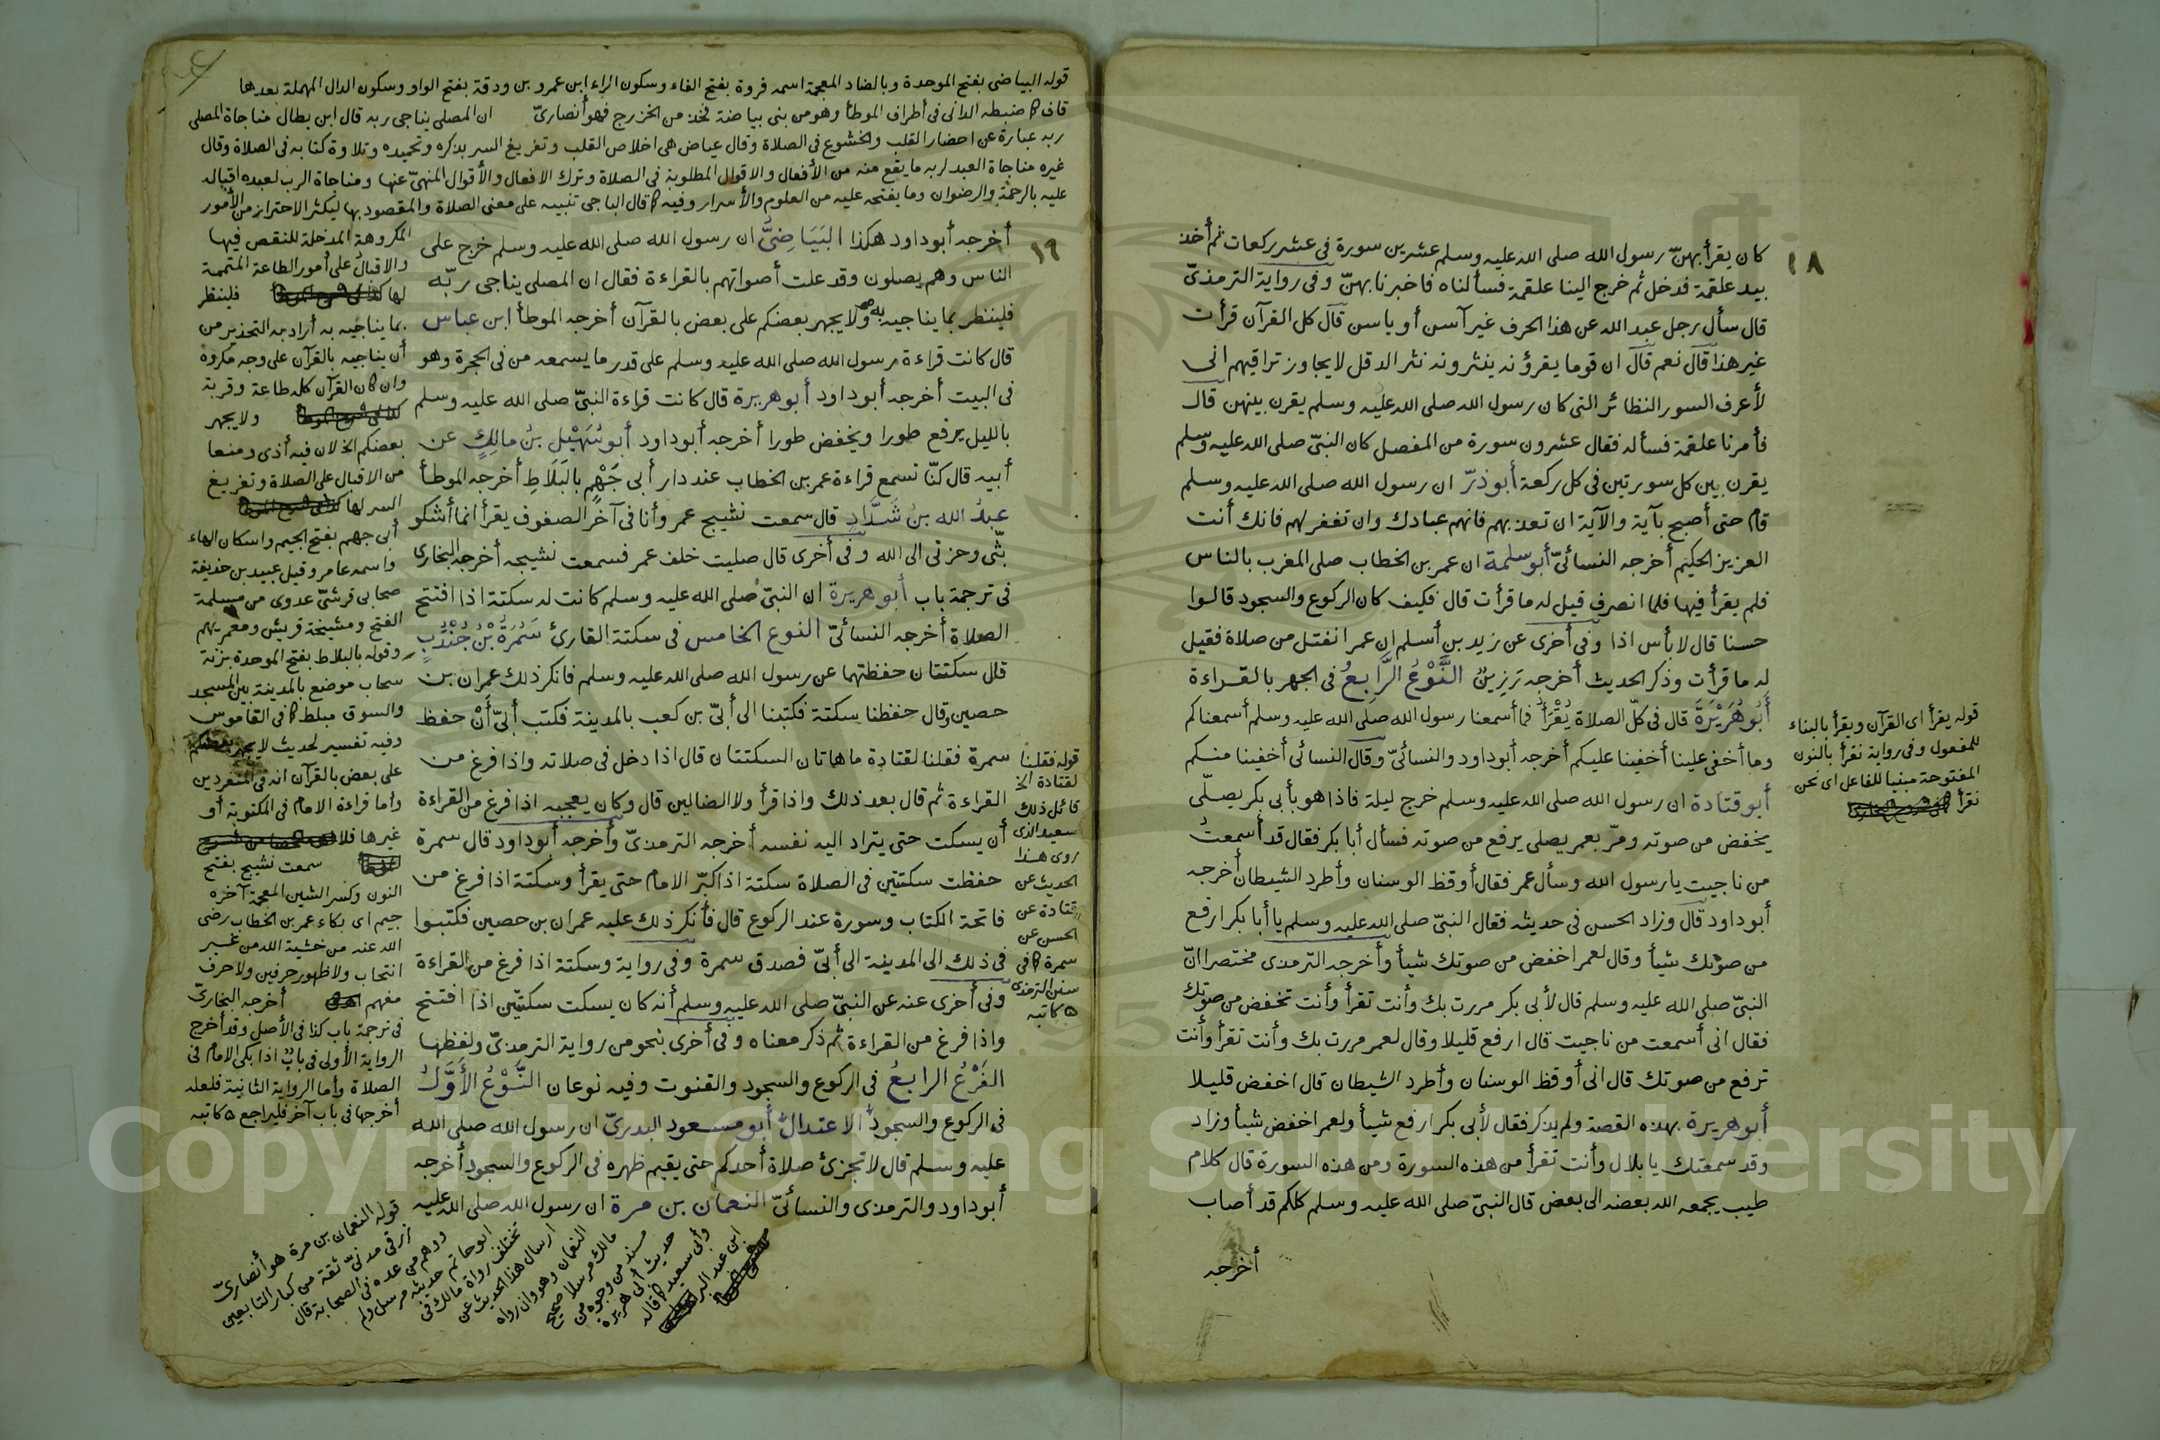 ١٨
كان يقرأ بهنّ رسول الله صلى الله عليه وسلم عشرين سورة في عشر ركعات ثم أخذ
بيد علقمة فدخل ثم خرج الينا علقمة فسألناه فاخبرنا بهنّ وفى رواية الترمذىّ
قال سأل رجل عبد الله عن هذا الحرف غير آسن أو ياسن قال كل القرآن قرأت
غير هذا قال نعم قال ان قوما يقرؤنه ينثرونه نثر الدقل لايجاوز تراقيهم انى
لأعرف السور النظائر التى كان رسول الله صلى الله عليه وسلم يقرن بينهن قال
فأمرنا علقمة فسأله فقال عشرون سورة من المفصل كان النبىّ صلى الله عليه وسلم
يقرن بين كل سورتين فى كل ركعة أبوذرّ ان رسول الله صلى الله عليه وسلم
قام حتى أصبح بآية والآية ان تعذبهم فانهم عبادك وان تغفر لهم فانك أنت
العزيز الحكيم أخرجه النسائىّ أبوسلمة ان عمر بن الخطاب صلى المغرب بالناس
فلم يقرأ فيها فلما انصرف قيل له ما قرأت قال فكيف كان الركوع والسجود قالوا
حسنا قال لابأس اذا وفى أخرى عن زيد بن أسلم ان عمر انفتل من صلاة فقيل
له ما قرأت وذكر الحديث أخرجه رزين النَّوْعُ الرَّابِعُ فى الجهر بالقراءة
أَبُوهُرَيْرَةَ قال فى كلّ الصلاة يُقْرَأ فما أسمعنا رسول الله صلى الله عليه وسلم أسمعناكم
وما أخفى علينا أخفينا عليكم أخرجه أبوداود والنسائىّ وقال النسائى أخفينا منكم
أبوقتادة ان رسول الله صلى الله عليه وسلم خرج ليلة فاذا هو بأبى بكر يصلّى
يخفض من صوته ومرّ بعمر يصلى يرفع من صوته فسأل أبا بكر فقال قد أسمعتُ
من ناجيت يا رسول الله وسأل عمر فقال أوقظ الوسنان وأطرد الشيطان أخرجه
أبوداود قال وزاد الحسن فى حديثه فقال النبىّ صلى الله عليه وسلم يا أبا بكر ارفع
من صوتك شيأ وقال لعمر اخفض من صوتك شيأ وأخرجه الترمذى مختصرا انّ
النبىّ صلى الله عليه وسلم قال لأبى بكر مررت بك وأنت تقرأ وأنت تخفض من صوتك
فقال انى أسمعت من ناجيت قال ارفع قليلا وقال لعمر مررت بك وأنت تقرأ وأنت
ترفع من صوتك قال انى أوقظ الوسنان وأطرد الشيطان قال اخفض قليلا
أبوهريرة بهذه القصة ولم يذكر فقال لأبى بكر ارفع شيأ ولعمر اخفض شيأ وزاد
وقد سمعتك يا بلال وأنت تقرأ من هذه السورة ومن هذه السورة قال كلام
طيب يجمعه الله بعضه الى بعض قال النبىّ صلى الله عليه وسلم كلكم قد أصاب
أخرجه
قوله يقرأ اى القرآن ويقرأ بالبناء
للمفعول وفى رواية نقرأ بالنون
المفتوحة مبنيا للفاعل اى نحن
نقرأ
قوله البياضى بفتح الموحدة وبالضاد المعجمة اسمه فروة بفتح الفاء وسكون الراء ابن عمرو بن ودقة بفتح الواو وسكون الدال المهملة بعدها
قاف كما ضبطه الدانى فى أطراف الموطأ وهو من بنى بياضة فخذ من الخزرج فهو أنصارىّ ان المصلى يناجى ربه قال ابن بطال مناجاة المصلى
ربه عبارة عن احضار القلب والخشوع فى الصلاة وقال عياض هى اخلاص القلب وتفريغ السر بذكره وتحميده وتلاوة كتابه فى الصلاة وقال
غيره مناجاة العبد لربه ما يقع منه من الأفعال والاقوال المطلوبة فى الصلاة وترك الافعال والأقوال المنهىّ عنها ومناجاة الرب لعبده اقباله
عليه بالرحمة والرضوان وما يفتحه عليه من العلوم والأسرار وفيه كما قال الباجى تنبيه على معنى الصلاة والمقصود بها ليكثر الاحتراز من الأمور
١٩
أخرجه أبوداود هكذا البَيَاضِىُّ ان رسول الله صلى الله عليه وسلم خرج على
الناس وهم يصلون وقد علت أصواتهم بالقراءة فقال ان المصلى يناجى ربّه
فلينظر بما يناجيه به ولايجهر بعضكم على بعض بالقرآن أخرجه الموطأ ابن عباس
قال كانت قراءة رسول الله صلى الله عليه وسلم على قدر ما يسمعه من فى الحجرة وهو
فى البيت أخرجه أبوداود أبوهريرة قال كانت قراءة النبىّ صلى الله عليه وسلم
بالليل يرفع طورا ويخفض طورا أخرجه أبوداود أبوسُهَيْلِ بنُ مالِكٍ عن
أبيه قال كنّا نسمع قراءة عمر بن الخطاب عند دار أبى جَهْمٍ بالبَلَاطِ أخرجه الموطأ
عبدُ الله بنُ شَدَّادٍ قال سمعت نشيج عمر وأنا فى آخر الصفوف يقرأ انما أشكو
بثّى وحزنى الى الله وفى أخرى قال صليت خلف عمر فسمعت نشيجه أخرجه البخارى
فى ترجمة باب أبوهريرة ان النبىّ صلى الله عليه وسلم كانت له سكتة اذا افتتح
الصلاة أخرجه النسائىّ النوع الخامس فى سكتة القارئ سَمُرَةُ بْنُ جُنْدُبٍ
قال سكتتان حفظتهما عن رسول الله صلى الله عليه وسلم فانكر ذلك عمران بن
حصين وقال حفظنا سكتة فكتبنا الى أبىّ بن كعب بالمدينة فكتب أبىّ أَنْ حفظ
سمرة فقلنا لقتادة ما هاتان السكتتان قال اذا دخل فى صلاته واذا فرغ من
القراءة ثم قال بعد ذلك واذا قرأ ولا الضالين قال وكان يعجبه اذا فرغ من القراءة
أن يسكت حتى يتراد اليه نفسه أخرجه الترمذىّ وأخرجه أبوداود قال سمرة
حفظت سكتتين فى الصلاة سكتة اذا كبّر الامام حتى يقرأ وسكتة اذا فرغ من
فاتحة الكتاب وسورة عند الركوع قال فأنكر ذلك عليه عمران بن حصين فكتبوا
فى ذلك الى المدينة الى أبىّ فصدق سمرة وفى رواية وسكتة اذا فرغ من القراءة
وفى أخرى عنه عن النبىّ صلى الله عليه وسلم أنه كان يسكت سكتتين اذا افتتح
واذا فرغ من القراءة ثم ذكر معناه وفى أخرى بنحو من رواية الترمذىّ ولفظها
الفَرْعُ الرابعُ فى الركوع والسجود والقنوت وفيه نوعان النَّوْعُ الأَوَّلُ
فى الركوع والسجود الاعتدالُ أبومسعود البدرىّ ان رسول الله صلى الله
عليه وسلم قال لا تجزئ صلاة أحدكم حتى يقيم ظهره فى الركوع والسجود أخرجه
أبوداود والترمذى والنسائىّ النعمان بن مرة ان رسول الله صلى الله عليه
قوله فقلنا
لقتادة الخ
قائل ذلك
سعيد الذى
روى هذا
الحديث عن
قتادة عن
الحسن عن
سمرة كما فى
سنن الترمذى
ه كاتبه
المكروهة المدخلة للنقص فيها
والاقبال على أمور الطاعة المتممة
لها فلينظر
بما يناجيه به أراد به التحذير من
أن يناجيه بالقرآن على وجه مكروه
وان كان القرآن كله طاعة وقربة
ولايجهر
بعضكم الخ لان فيه أذى ومنعا
من الاقبال على الصلاة وتفريغ
السر لها
أبى جهم بفتح الجيم واسكان الهاء
واسمه عامر وقيل عبيد بن حذيفة
صحابى قرشىّ عدوى من مسلمة
الفتح ومشيخة قريش ومعمريهم
وقوله بالبلاط بفتح الموحدة بزنة
سحاب موضع بالمدينة بين المسجد
والسوق مبلط كما فى القاموس
وفيه تفسير لحديث لايجهر بعضكم
على بعض بالقرآن انه فى المنفردين
وأما قراءة الامام فى المكتوبة أو
غيرها فلا
سمعت نشيج بفتح
النون وكسر الشين المعجمة آخره
جيم اى بكاء عمر بن الخطاب رضى
الله عنه من خشية الله من غير
انتحاب ولا ظهور حرفين ولا حرف
مفهم أخرجه البخارىّ
فى ترجمة باب كذا فى الأصل وقد أخرج
الرواية الأولى فى باب اذا بكى الامام فى
الصلاة وأما الرواية الثانية فلعله
أخرجها فى باب آخر فليراجع ه كاتبه
قوله النعمان بن مرة هو أنصارىّ
زرقى مدنىّ ثقة من كبار التابعين
ووهم من عده فى الصحابة قال
ابوحاتم حديثه مرسل ولم
تختلف رواة مالك فى
ارسال هذا الحديث عن
النعمان وهو وان رواه
مالك مرسلا صحيح
مسند من وجوه من
حديث أبى هريرة
وأبى سعيد كما قاله
ابن عبد البر
Copyright © King Saud University